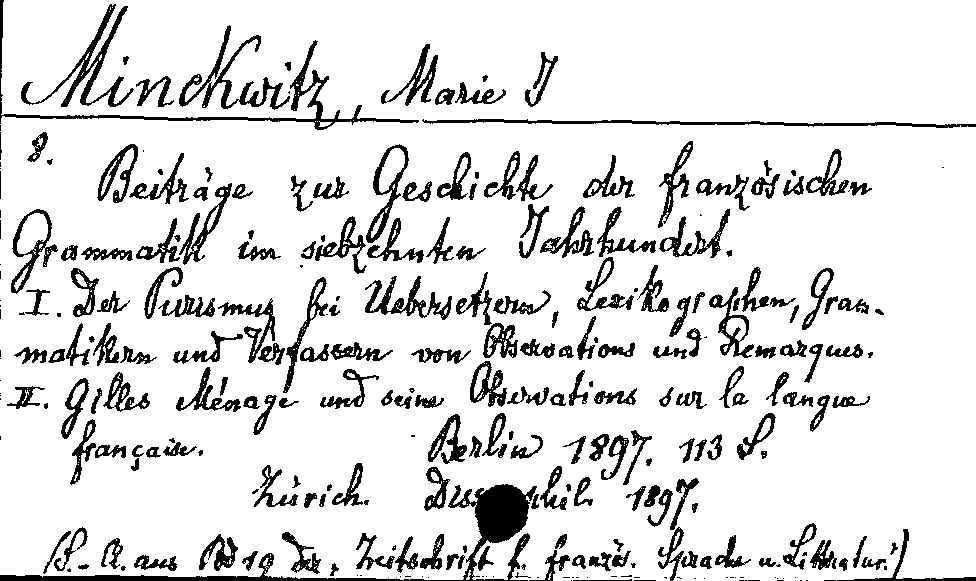 Minckwitz, Marie J
8.
Beiträge zur Geschichte der französischen
Grammatik im siebzehnten Jahrhundert.
I. Der Purismus bei Uebersetzern, Lexikographen, Gram-
matikern und Verfassern von Observations und Remarques.
II. Gilles Ménage und seine Observations sur la langue
française. Berlin 1897. 113 S.
Zürich. Diss. phil. 1897.
(S.-A. aus Bd 19 der „Zeitschrift f. französ. Sprache u. Litteratur.")